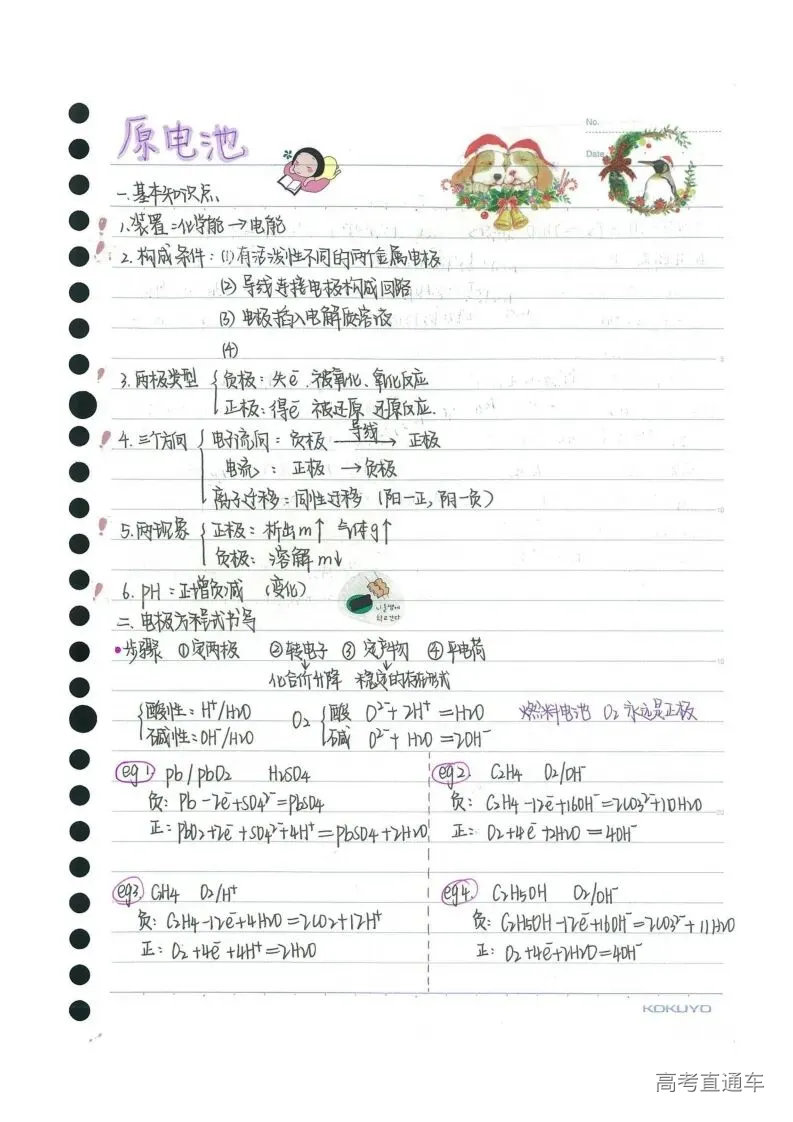 原电池
No.
Date
一.基本知识点
1.装置:化学能→电能
2.构成条件:(1)有活泼性不同的两个金属电极
(2)导线连接电极构成回路
(3)电极插入电解质溶液
(4)
3.两极类型 { 负极:失e⁻ 被氧化、氧化反应
正极:得e⁻ 被还原 还原反应.
4.三个方向 { 电子流向:负极 —导线→ 正极
电流:正极→负极
离子迁移:同性迁移(阳一正,阴一负)
5.两现象 { 正极:析出m↑ 气体g↑
负极:溶解m↓
6.pH:正增负减 (变化)
二.电极方程式书写
•步骤 ①定两极 ②转电子 ③定产物 ④平电荷
化合价升降 稳定的存在形式
{ 酸性:H⁺/H2O O2 { 酸 O²⁻+2H⁺=H2O 燃料电池 O2永远是正极
碱性:OH⁻/H2O 碱 O²⁻+H2O=2OH⁻
eg1. Pb/PbO2 H2SO4
负:Pb-2e⁻+SO4²⁻=PbSO4
正:PbO2+2e⁻+SO4²⁻+4H⁺=PbSO4+2H2O
eg2. C2H4 O2/OH⁻
负:C2H4-12e⁻+16OH⁻=2CO3²⁻+10H2O
正:O2+4e⁻+2H2O=4OH⁻
eg3 C2H4 O2/H⁺
负:C2H4-12e⁻+4H2O=2CO2+12H⁺
正:O2+4e⁻+4H⁺=2H2O
eg4. C2H5OH O2/OH⁻
负:C2H5OH-12e⁻+16OH⁻=2CO3²⁻+11H2O
正:O2+4e⁻+2H2O=4OH⁻
KOKUYO
高考直通车